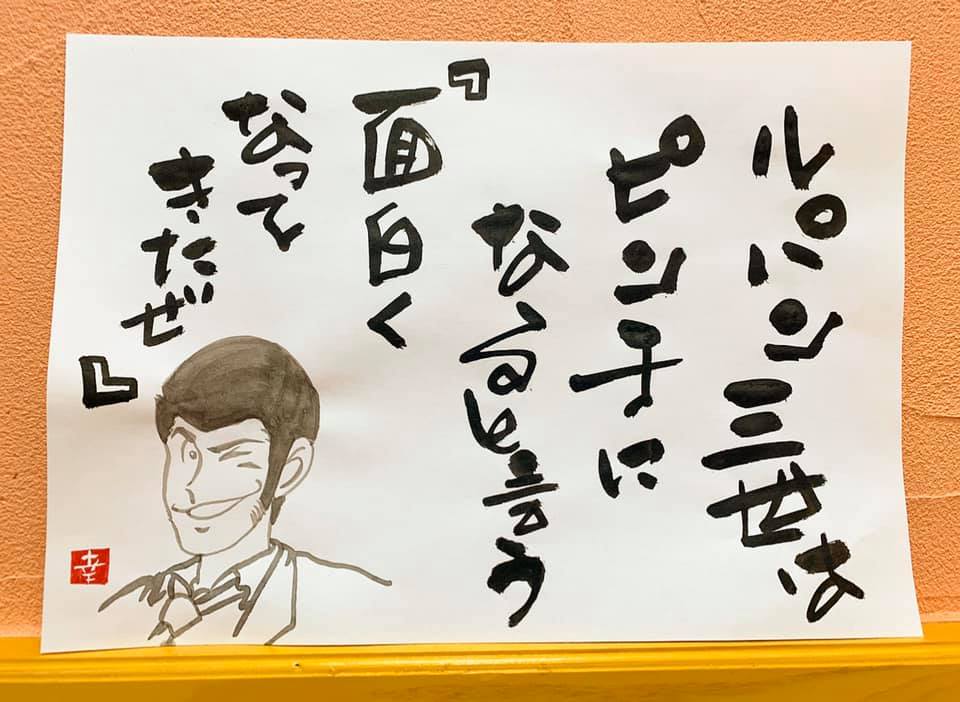 ルパン三世は
ピンチに
なると言う
『面白く
なって
きたぜ』
幸